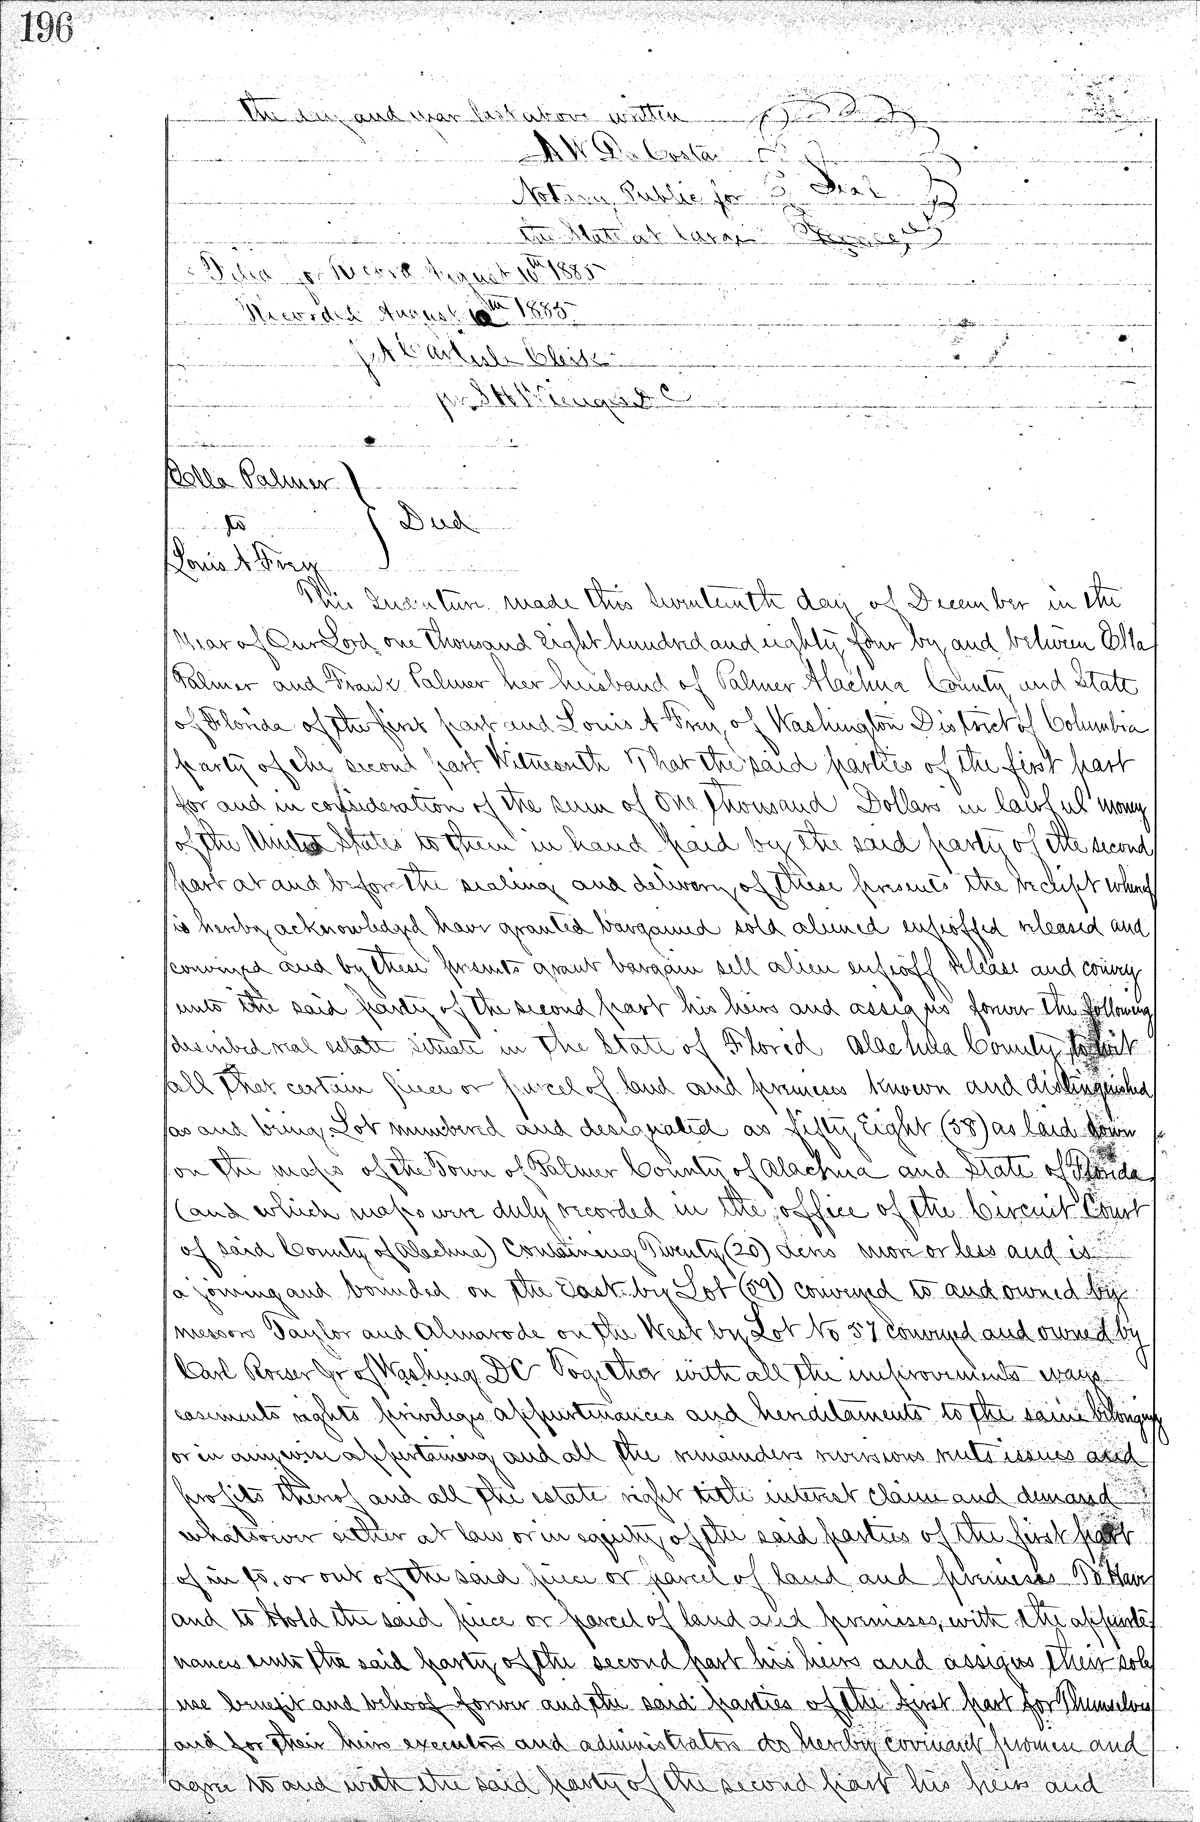 196
the day and year last above written
A W Da Costa
Notary Public for Seal
the State at Large
Filed for Record August 10th 1885
Recorded August 10th 1885
J A Carlisle Clerk
pr S H Wienges D C
Ella Palmer
to } Deed
Louis A Frey
This Indenture made this Seventeenth day of December in the
Year of Our Lord one thousand Eight hundred and eighty four by and between Ella
Palmer and Frank Palmer her husband of Palmer Alachua County and State
of Florida of the first part and Louis A Frey, of Washington District of Columbia
party of the second part Witnesseth That the said parties of the first part
for and in consideration of the sum of One thousand Dollars in lawful money
of the United States to them in hand paid by the said party of the second
part at and before the sealing and delivery of these presents the receipt whereof
is hereby acknowledged have granted bargained sold aliened enfeoffed released and
conveyed and by these presents grant bargain sell alien enfeoff release and convey
unto the said party of the second part his heirs and assigns forever the following
described real estate situate in the State of Florid Alachua County to wit
all that certain piece or parcel of land and premises known and distinguished
as and being Lot numbered and designated as fifty Eight (58) as laid down
on the maps of the Town of Palmer County of Alachua and State of Florida
(and which maps were duly recorded in the office of the Circuit Court
of said County of Alachua) Containing Twenty (20) acres more or less and is
a joining and bounded on the East by Lot (59) conveyed to and owned by
messors Taylor and Almarode on the West by Lot No 57 conveyed and owned by
Carl Roeser Jr of Washing DC Together with all the improvements ways
easements rights privileges appurtenances and hereditaments to the same belonging
or in anywise appertaining and all the remainders reversions rents issues and
profits thereof and all the estate right title interest claim and demand
whatsoever either at law or in equity of the said parties of the first part
of in to, or out of the said piece or parcel of land and premises To Have
and to Hold the said piece or parcel of land and premises, with the appurte
nances unto the said party of the second part his heirs and assigns their sole
use benefit and behoof forever and the said parties of the first part for Themselves
and for their heirs executors and administrators do hereby covenant promise and
agree to and with the said party of the second part his heirs and